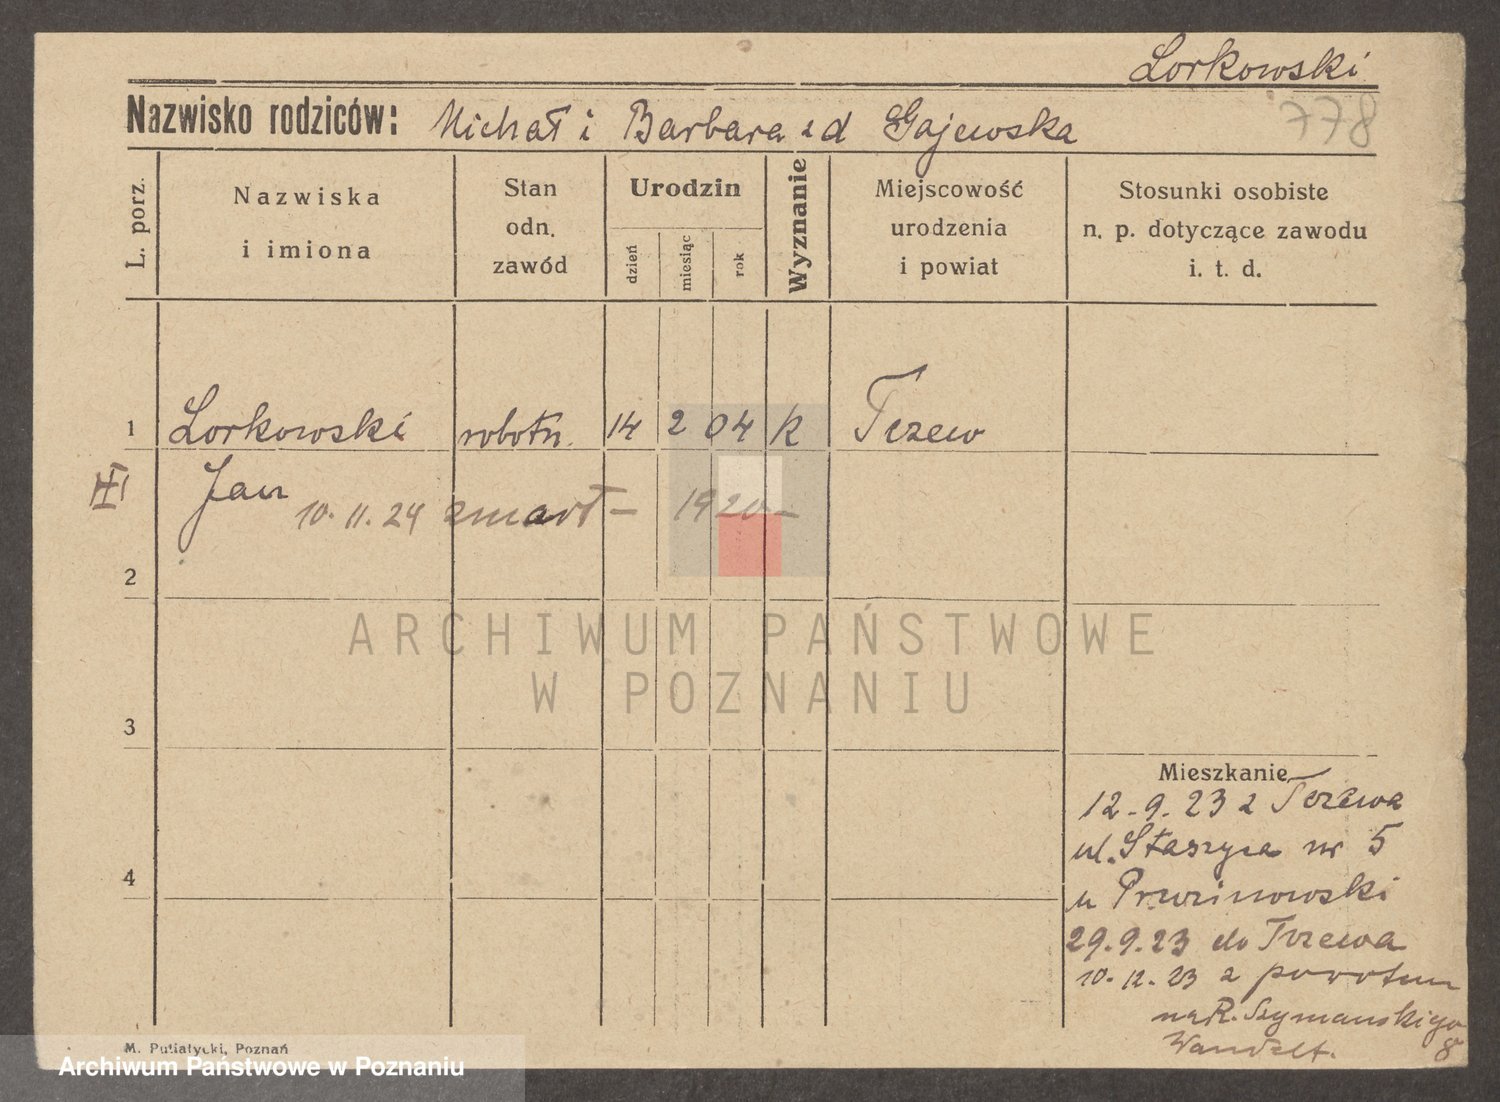 Lorkowski
778
Nazwisko rodziców: Michał i Barbara zd Gajewska
L. porz.
Nazwiska
i imiona
Stan
odn.
zawód
Urodzin
dzień
miesiąc
rok
Wyznanie
Miejscowość
urodzenia
i powiat
Stosunki osobiste
n. p. dotyczące zawodu
i. t. d.
1 Lorkowski robotn. 14 2 04 k Tczew
Jan
10. 11. 24 zmarł – 1920 –
2
3
4
Mieszkanie
12. 9. 23 z Tczewa
ul. Staszyca nr 5
u
29. 9. 23 do Tczewa
10. 12. 23 z powrotem
na R. Szymańskiego 8
Wandelt.
M. Putiatycki, Poznań
ARCHIWUM PAŃSTWOWE
W POZNANIU
Archiwum Państwowe w Poznaniu